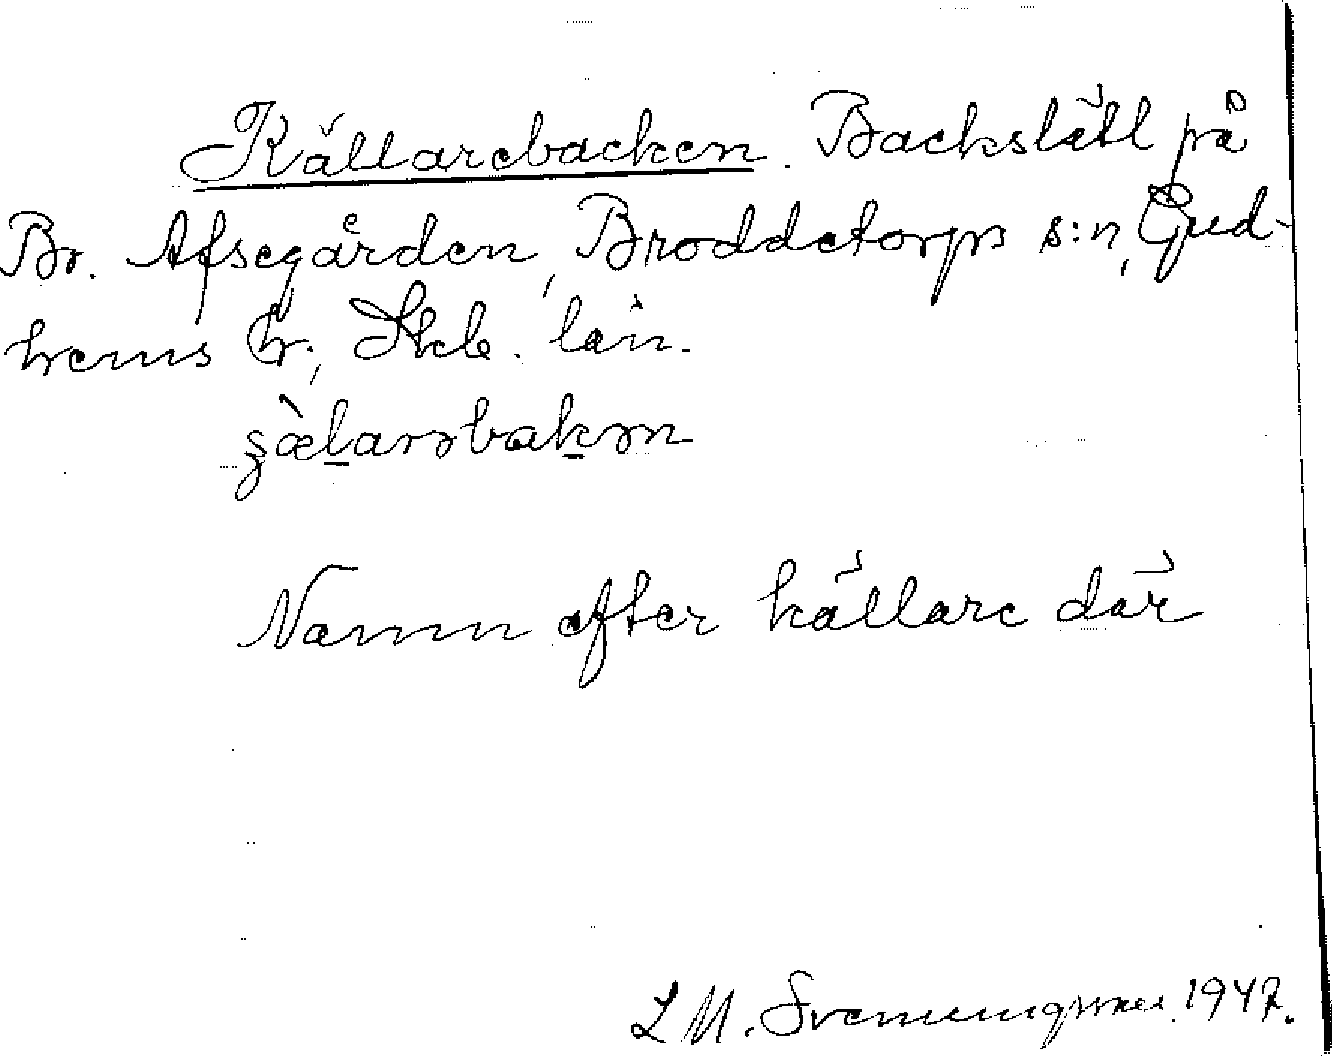 Källarebacken. Backslätt på
Br. Afsegården, Broddetorps s:n, Gud-
hems hr., Skb. län.
Namn efter källare där
L M. Svenungsson 1947.